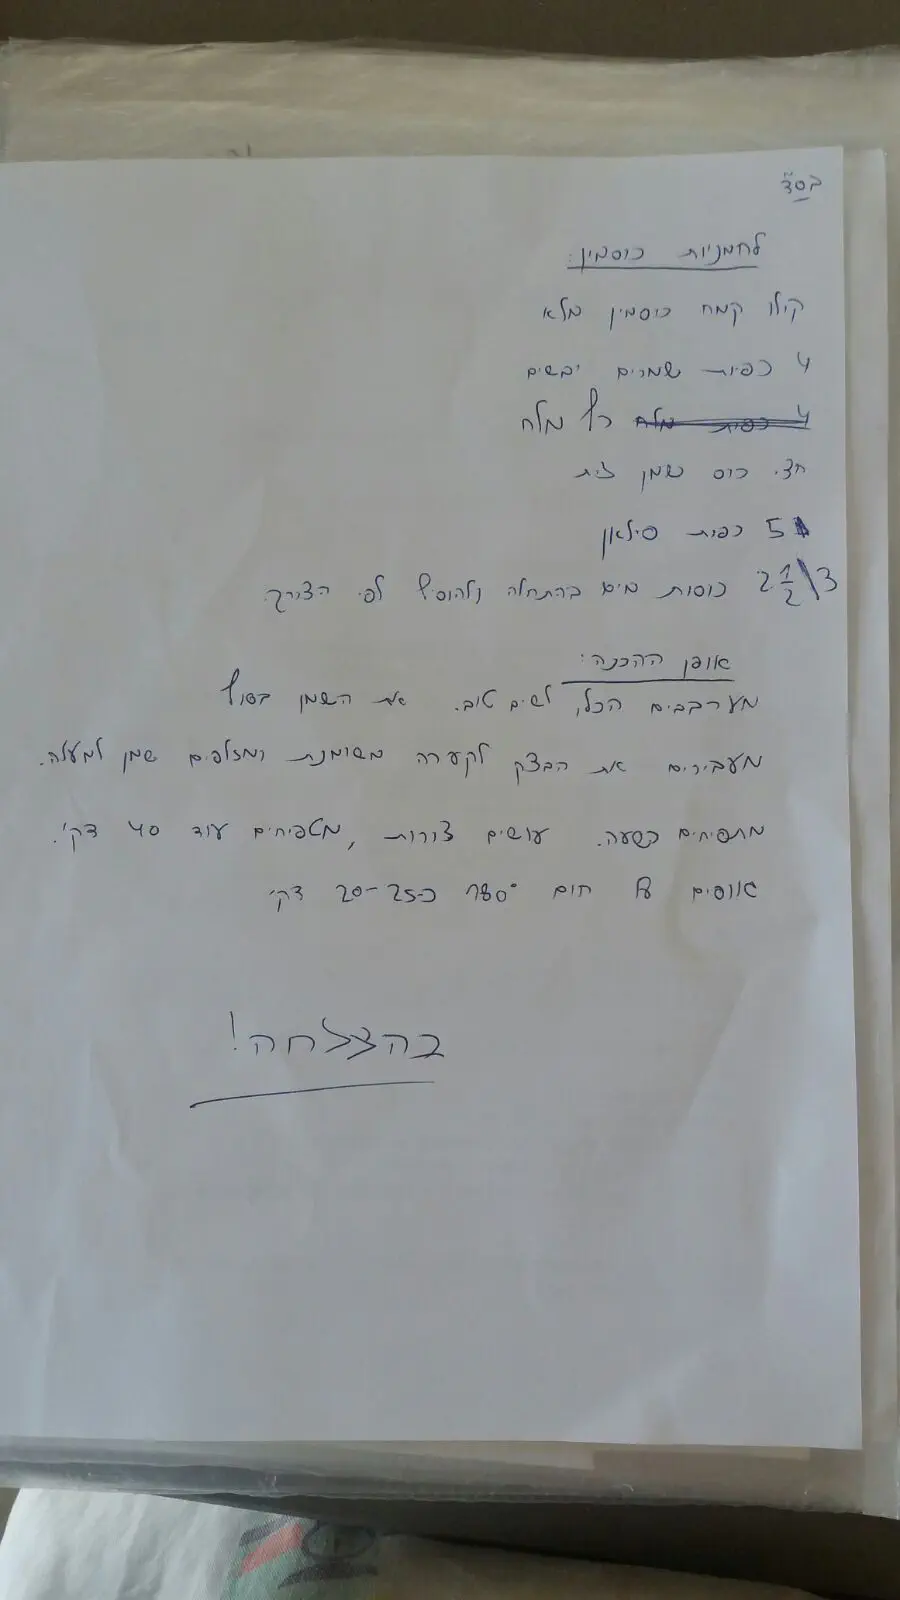 בס"ד
לחמניות כוסמין:
קילו קמח כוסמין מלא
4 כפיות שמרים יבשים
4 כפית מלח כף מלח
חצי כוס שמן זית
5 כפות סילאן
3\2 1/2 כוסות מים בהתחלה ולהוסיף לפי הצורך.
אופן ההכנה:
מערבבים הכל, לשים טוב. את השמן בסוף
מעבירים את הבצק לקערה משומנת ומזלפים שמן למעלה.
מתפיחים כשעה. עושים צורות, מטפיחים עוד 40 דק'.
אופים על חום 180° כ-20-25 דק'
בהצלחה!